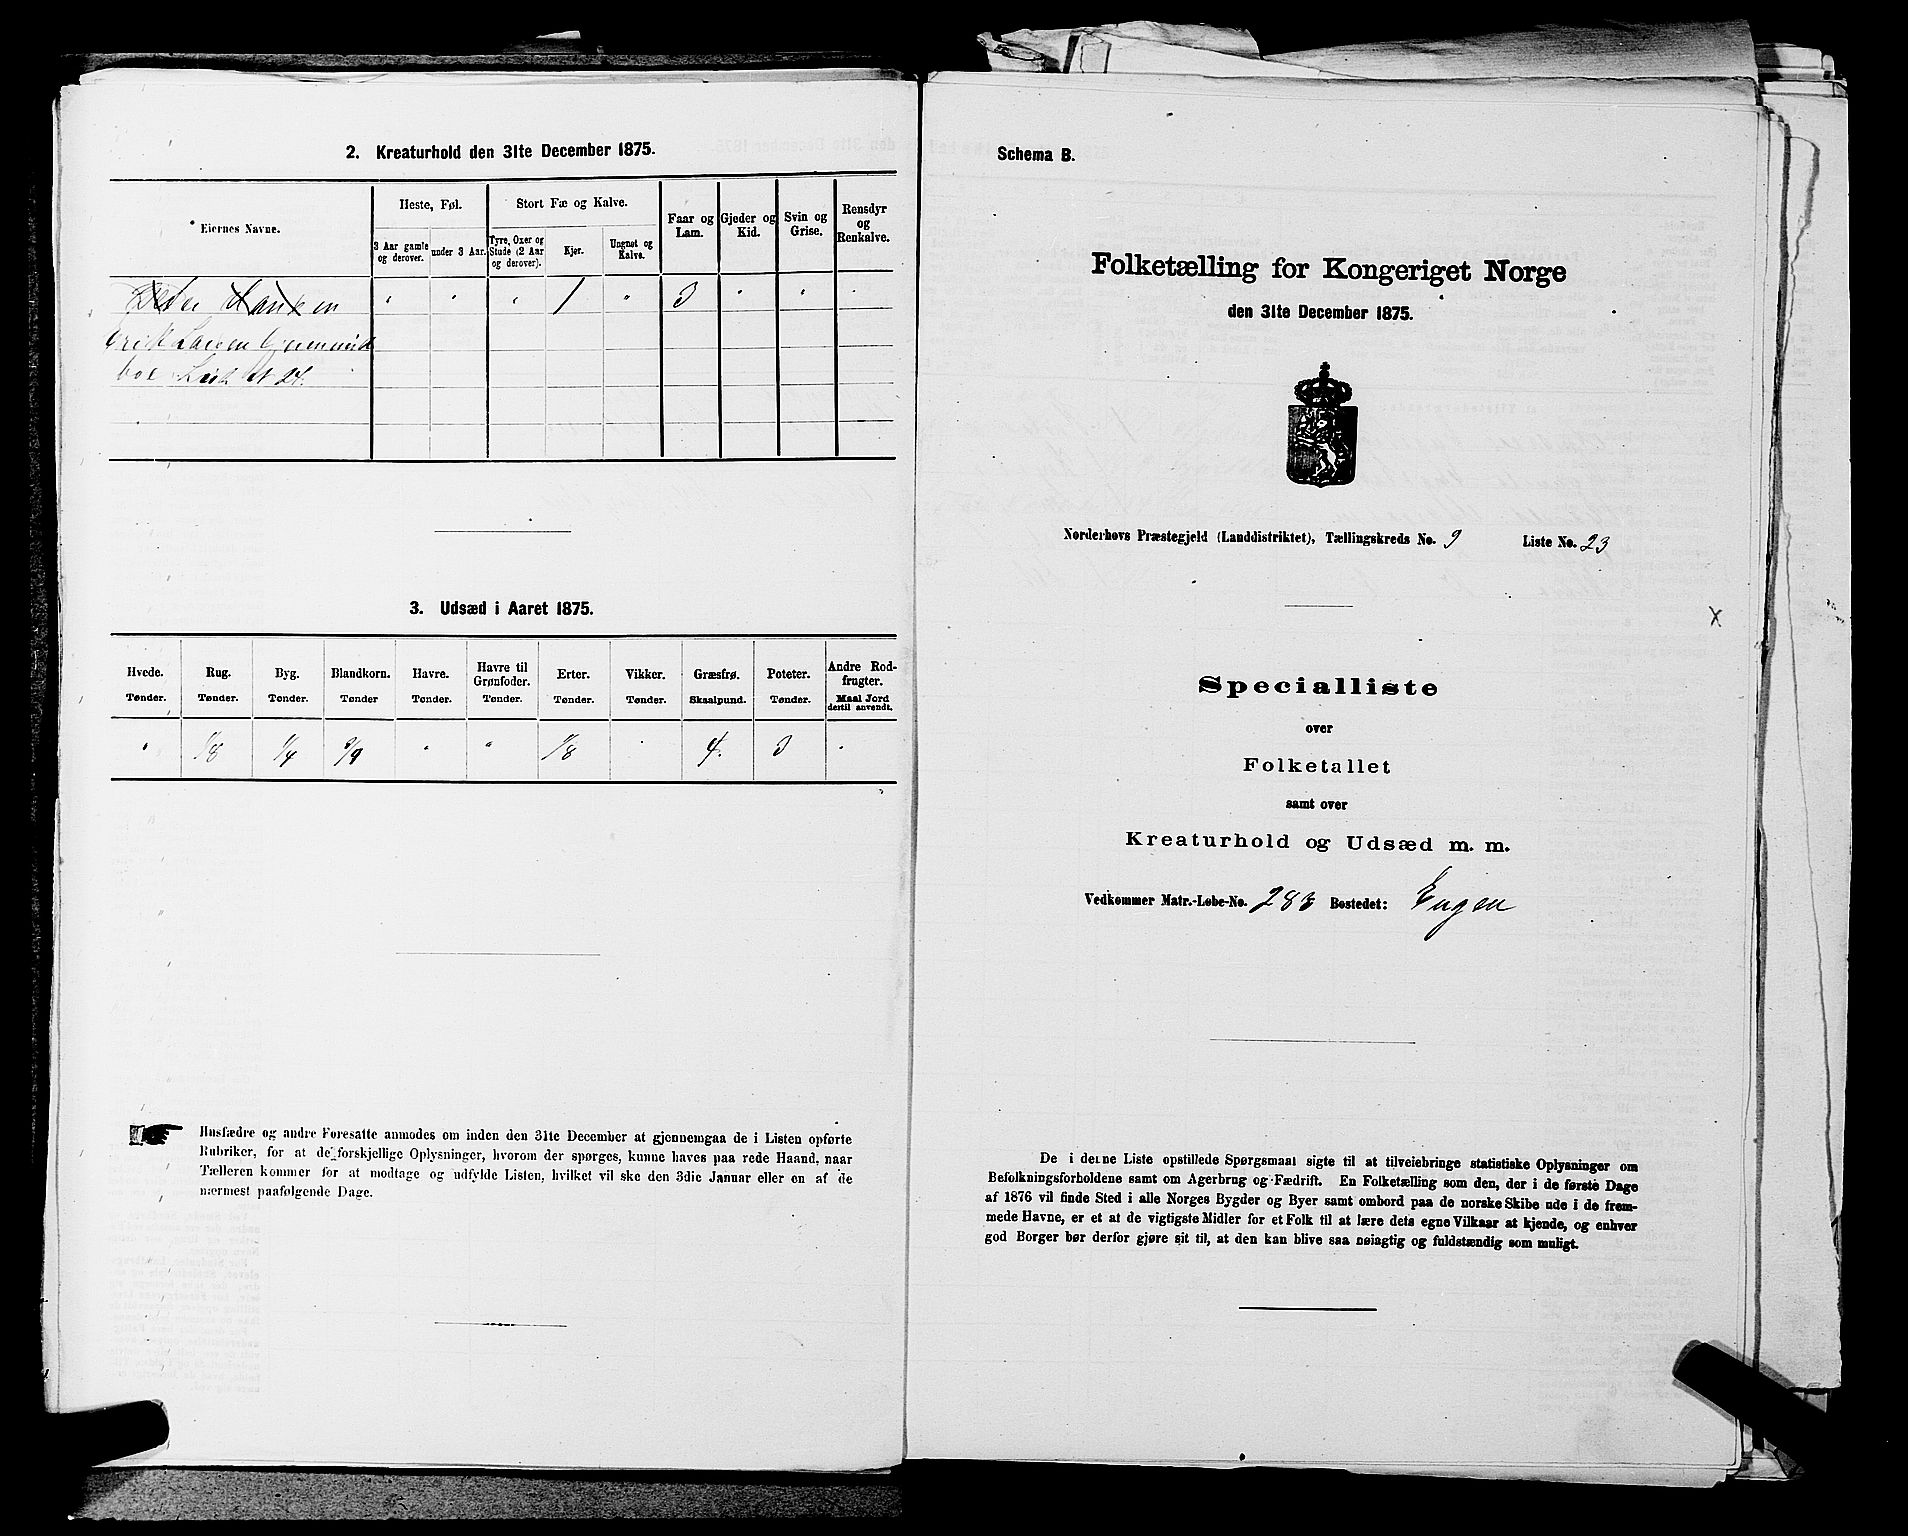 2. Kreaturhold den 31te December 1875.
Eiernes Navne.
Heste, Føl.
Stort Fæ og Kalve.
Faar og Lam.
Gjeder og Kid.
Svin og Grise.
Rensdyr og Renkalve.
3 Aar gamle og derover.
under 3 Aar.
Tyre, Oxer og Stude (2 Aar og derover).
Kjør.
Ungnøt og Kalve.
" " " 1 " 3 " " "
3. Udsæd i Aaret 1875.
Hvede. Rug. Byg. Blandkorn. Havre. Havre til Grønfoder. Erter. Vikker. Græsfrø. Poteter. Andre Rodfrugter.
Tønder. Tønder. Tønder. Tønder Tønder. Tønder. Tønder. Tønder. Skaalpund. Tønder. Maal Jord dertil anvendt.
" 1/8 1/4 " " 1/8 4. 3 "
Husfædre og andre Foresatte anmodes om inden den 31te December at gjennemgaa de i Listen opførte
Rubriker, for at de forskjellige Oplysninger, hvorom der spørges, kunne haves paa rede Haand, naar
Tælleren kommer for at modtage og udfylde Listen, hvilket vil ske den 3die Januar eller en af de
nærmest paafølgende Dage.
Schema B.
Folketælling for Kongeriget Norge
den 31te December 1875.
Norderhovs Præstegjeld (Landdistriktet), Tællingskreds No. 9 Liste No. 23
x
Specialliste
over
Folketallet
samt over
Kreaturhold og Udsæd m. m.
Vedkommer Matr.-Løbe-No. 283 Bostedet: Engen
De i denne Liste opstillede Spørgsmaal sigte til at tilveiebringe statistiske Oplysninger om
Befolkningsforholdene samt om Agerbrug og Fædrift. En Folketælling som den, der i de første Dage
af 1876 vil finde Sted i alle Norges Bygder og Byer samt ombord paa de norske Skibe ude i de frem-
mede Havne, er et at de vigtigste Midler for et Folk til at lære dets egne Vilkaar at kjende, og enhver
god Borger bør derfor gjøre sit til, at den kan blive saa nøiagtig og fuldstændig som muligt.